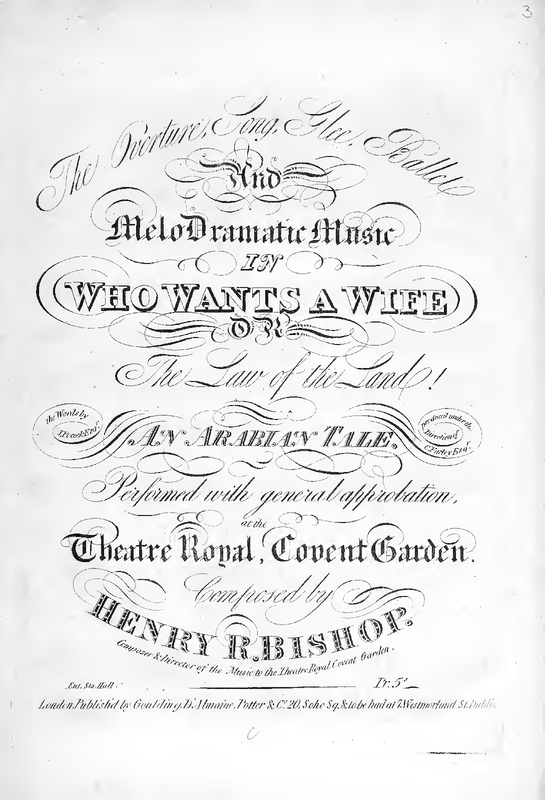 3
The Overture, Song, Glee, Ballet
And
MeloDramatic Music
IN
WHO WANTS A WIFE
OR
The Law of the Land!
the Words by
I. Pocock Esqr.
AN ARABIAN TALE,
produced under the
Direction of
C. Farley Esqr.
Performed with general approbation,
at the
Theatre Royal, Covent Garden.
Composed by
HENRY R. BISHOP.
Composer & Director of the Music to the Theatre Royal Covent Garden.
Ent. Sta. Hall.
Pr. 5s_
London, Publish'd by Goulding, D'Almaine, Potter & Co. 20, Soho Sq. & to be had at 7, Westmorland St. Dublin.